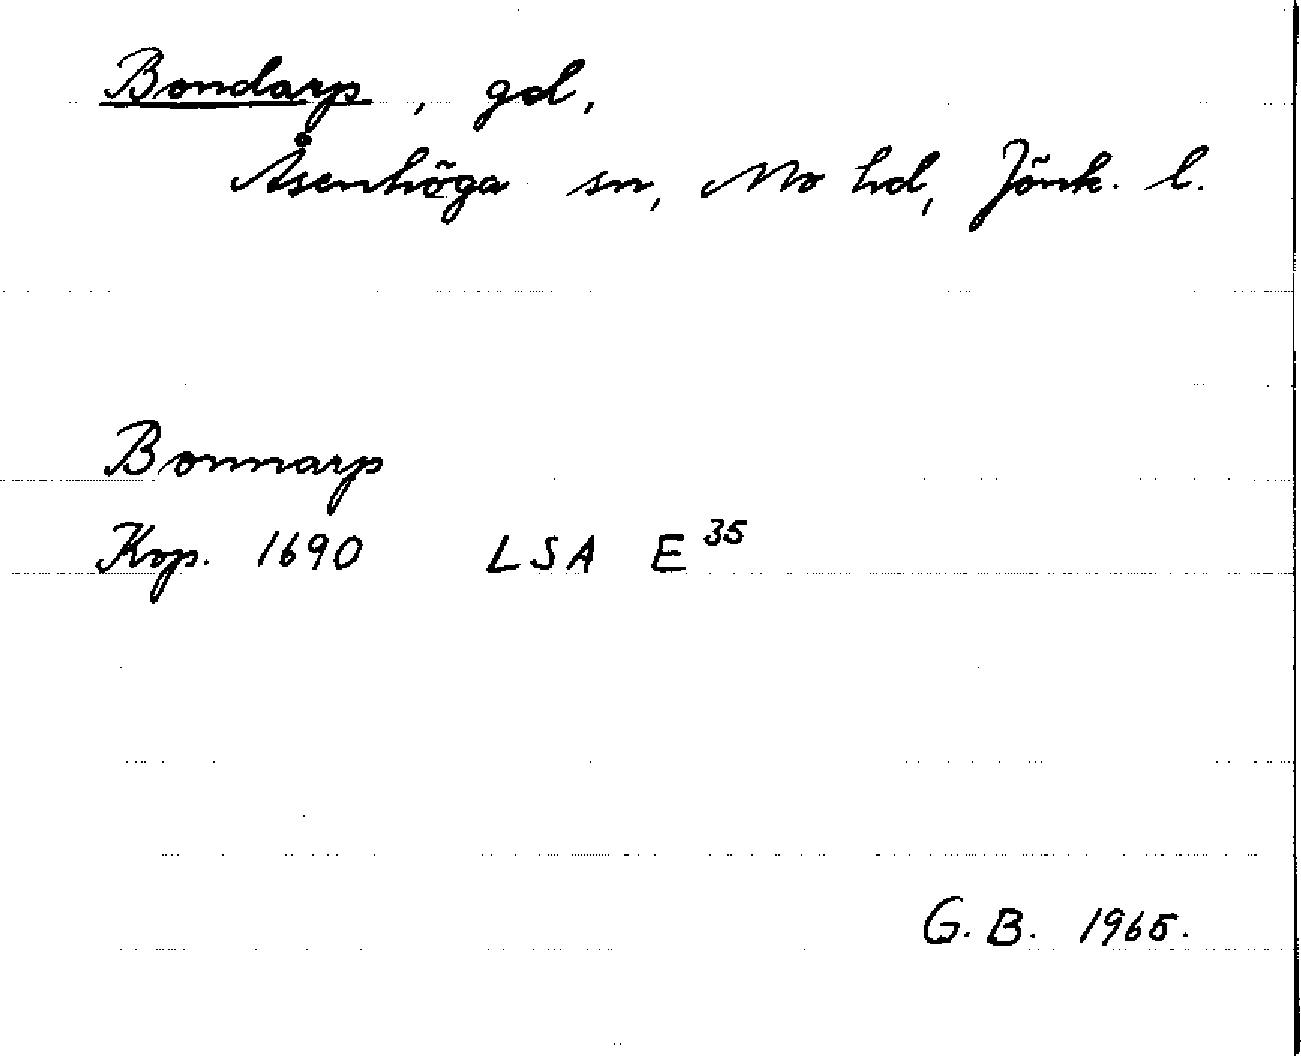 Bondarp, gd,
Åsenhöga sn, Mo hd, Jönk. l.
Bonnarp
Kop. 1690 LSA E 35
G. B. 1965.